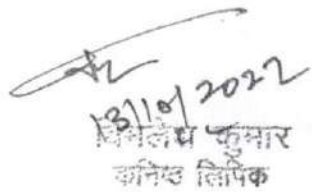 13/10/2022
विमलेश कुमार
कनिष्ठ लिपिक